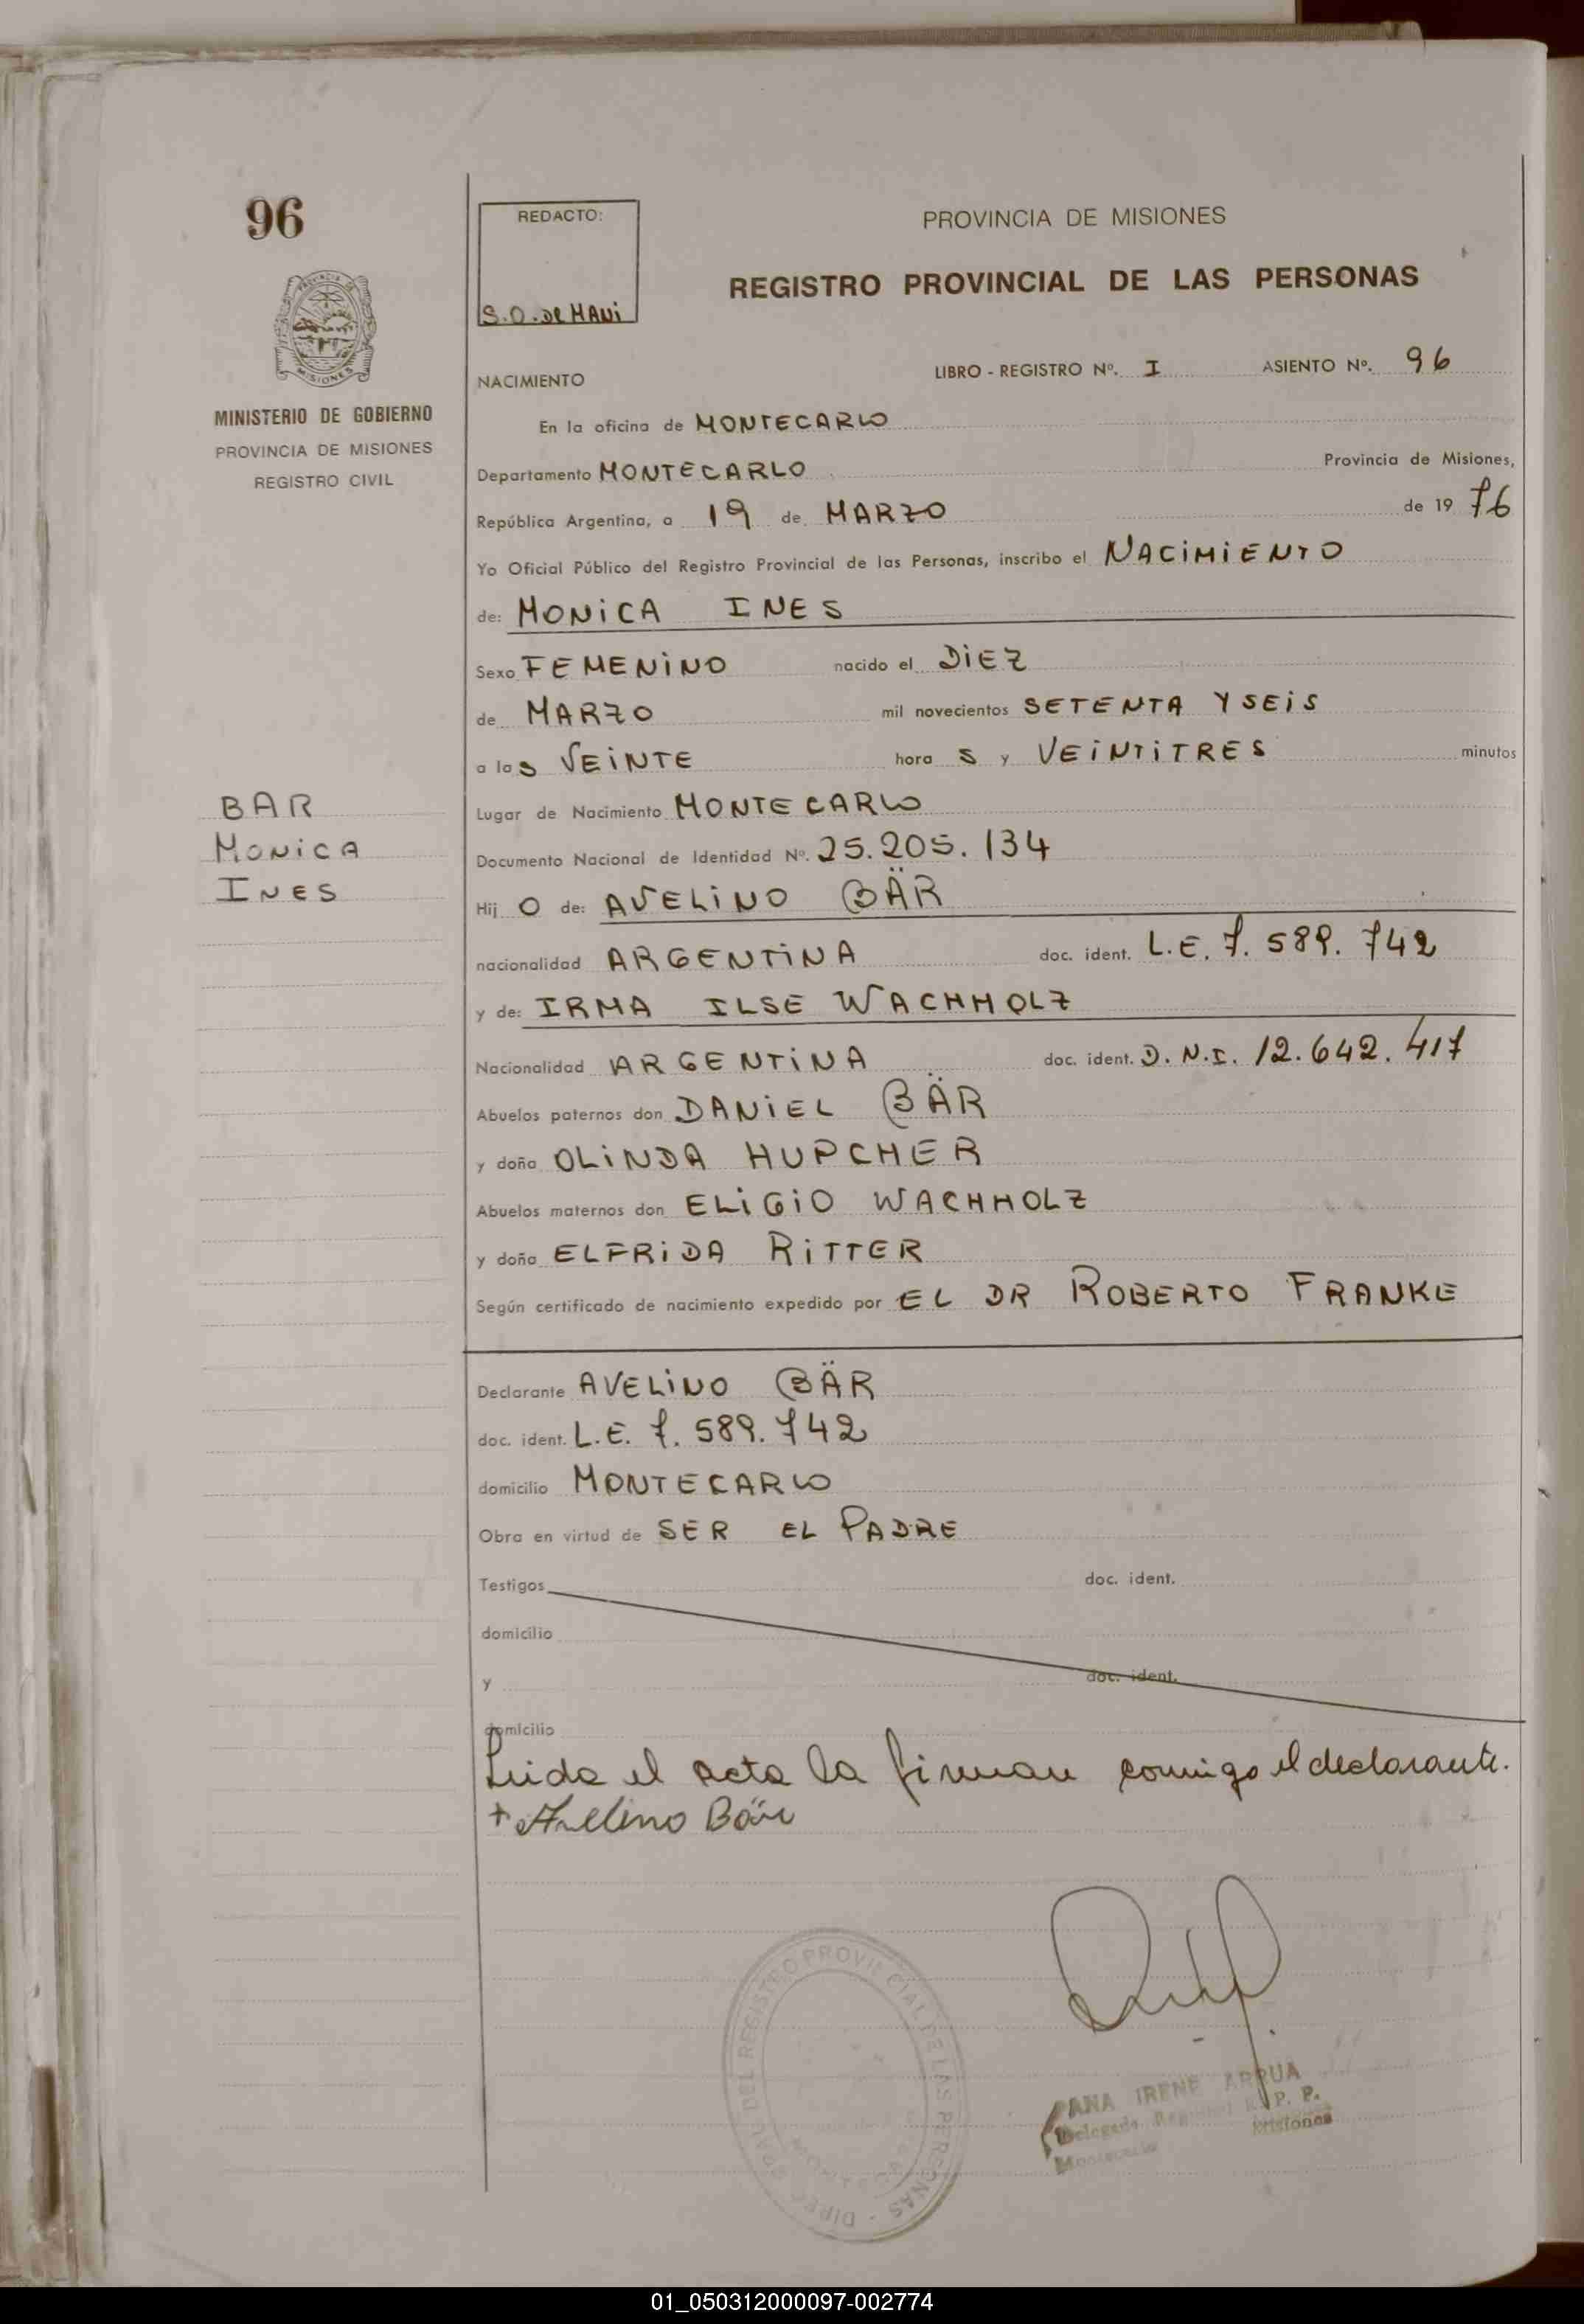 96
REDACTO:
S.O. DE MANI
PROVINCIA DE MISIONES
REGISTRO PROVINCIAL DE LAS PERSONAS
PROVINCIA DE
MISIONES
MINISTERIO DE GOBIERNO
PROVINCIA DE MISIONES
REGISTRO CIVIL
NACIMIENTO LIBRO - REGISTRO Nº. I ASIENTO Nº. 96
En la oficina de MONTECARLO
Departamento MONTECARLO Provincia de Misiones,
República Argentina, a 19 de MARZO de 19 76
Yo Oficial Público del Registro Provincial de las Personas, inscribo el NACIMIENTO
de: MONICA INES
Sexo FEMENINO nacido el DIEZ
de MARZO mil novecientos SETENTA Y SEIS
a las VEINTE hora s y VEINTITRES minutos
BAR
MONICA
INES
Lugar de Nacimiento MONTECARLO
Documento Nacional de Identidad Nº. 25.205.134
Hij O de: AVELINO BÄR
nacionalidad ARGENTINA doc. ident. L.E. 7.589.742
y de: IRMA ILSE WACHHOLZ
Nacionalidad ARGENTINA doc. ident. D.N.I. 12.642.417
Abuelos paternos don DANIEL BÄR
y doña OLINDA HUPCHER
Abuelos maternos don ELIGIO WACHHOLZ
y doña ELFRIDA RITTER
Según certificado de nacimiento expedido por EL DR ROBERTO FRANKE
Declarante AVELINO BÄR
doc. ident. L.E. 7.589.742
domicilio MONTECARLO
Obra en virtud de SER EL PADRE
Testigos doc. ident.
domicilio
y doc. ident.
domicilio
Leida el acta la firman comigo el declarante.
+ Avelino Bär
DEL REGISTRO PROVINCIAL DE LAS PERSONAS
ANA IRENE ARRUA
Delegada R. P. P.
Montecarlo Misiones
01_050312000097-002774